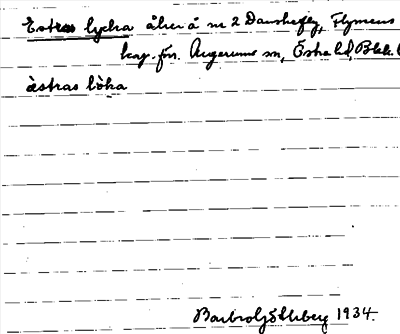 Estras lycka åker å nr 2 Danskefly, Flymens
kap. förs. Augerums sn, Östra hd, Blek.
àstras lòka
Barbro Göthberg 1934.